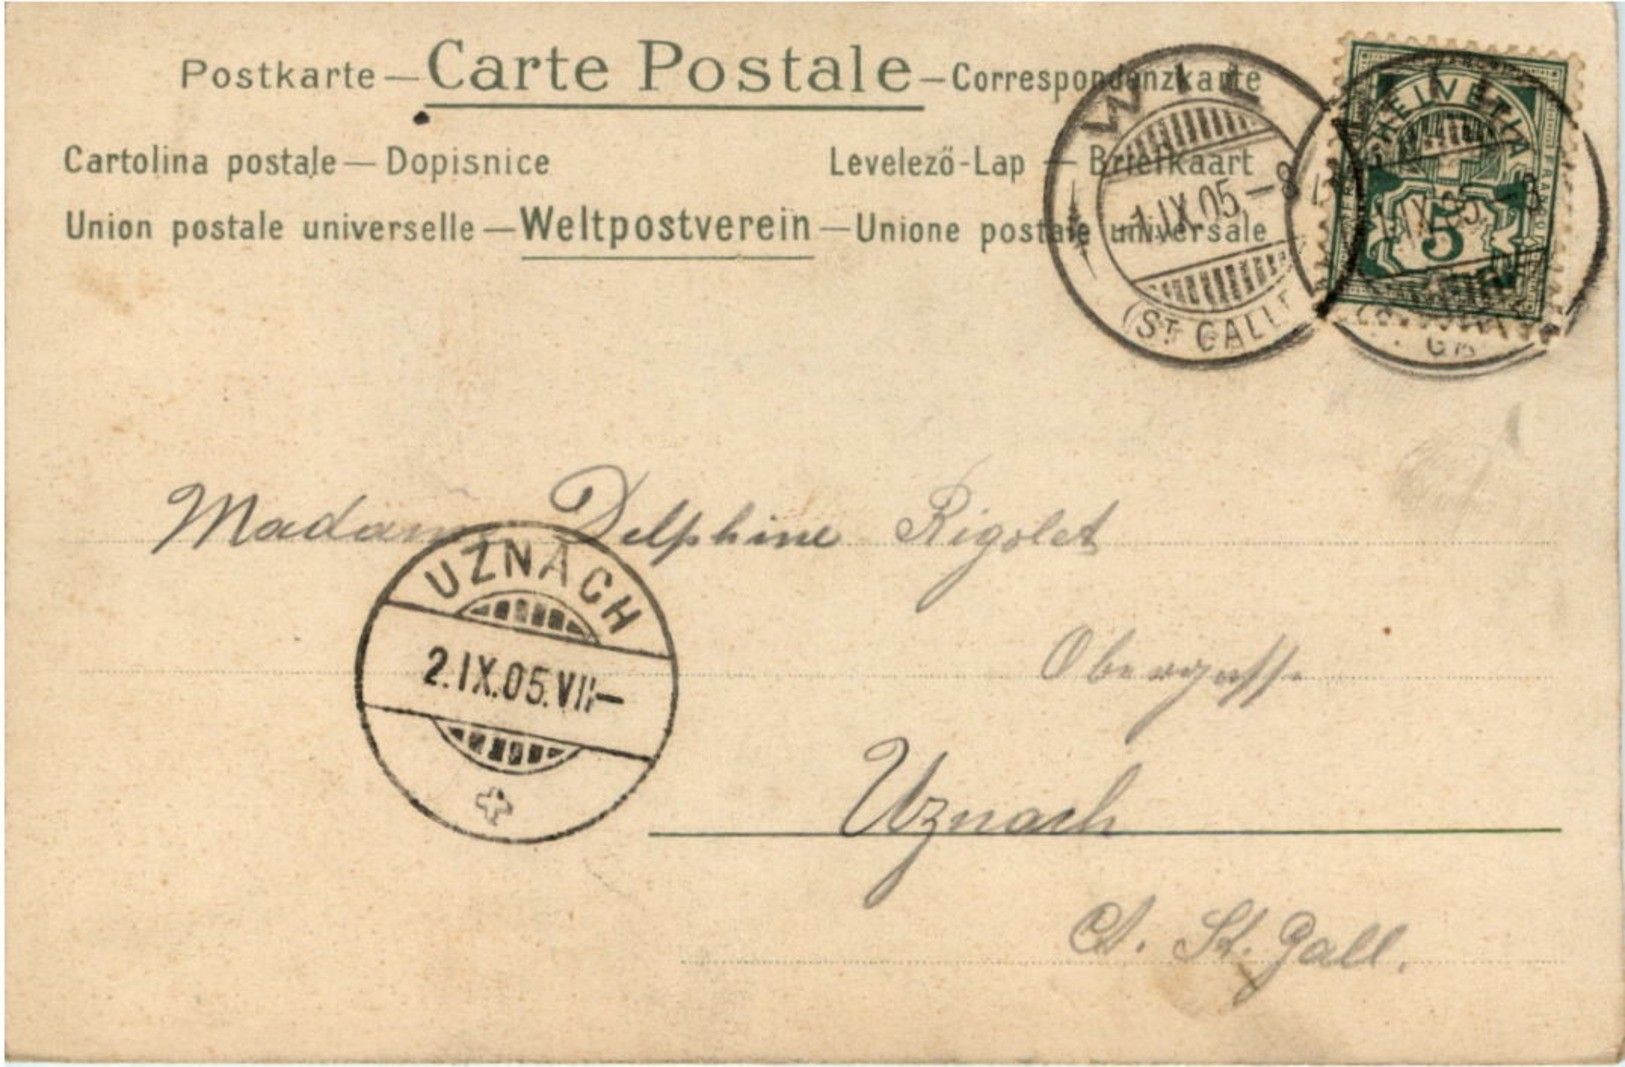 Postkarte — Carte Postale — Correspondenzkarte
Cartolina postale — Dopisnice
Levelező-Lap — Briefkaart
Union postale universelle — Weltpostverein — Unione postale universale
WIL
1.IX.05.-8
(ST. GALL
HELVETIA
FRANCO
5
IX.05.-8
Madame Delphine Rigolet
UZNACH
2.IX.05.VII-
Obergasse
Uznach
Ct. St. Gall.